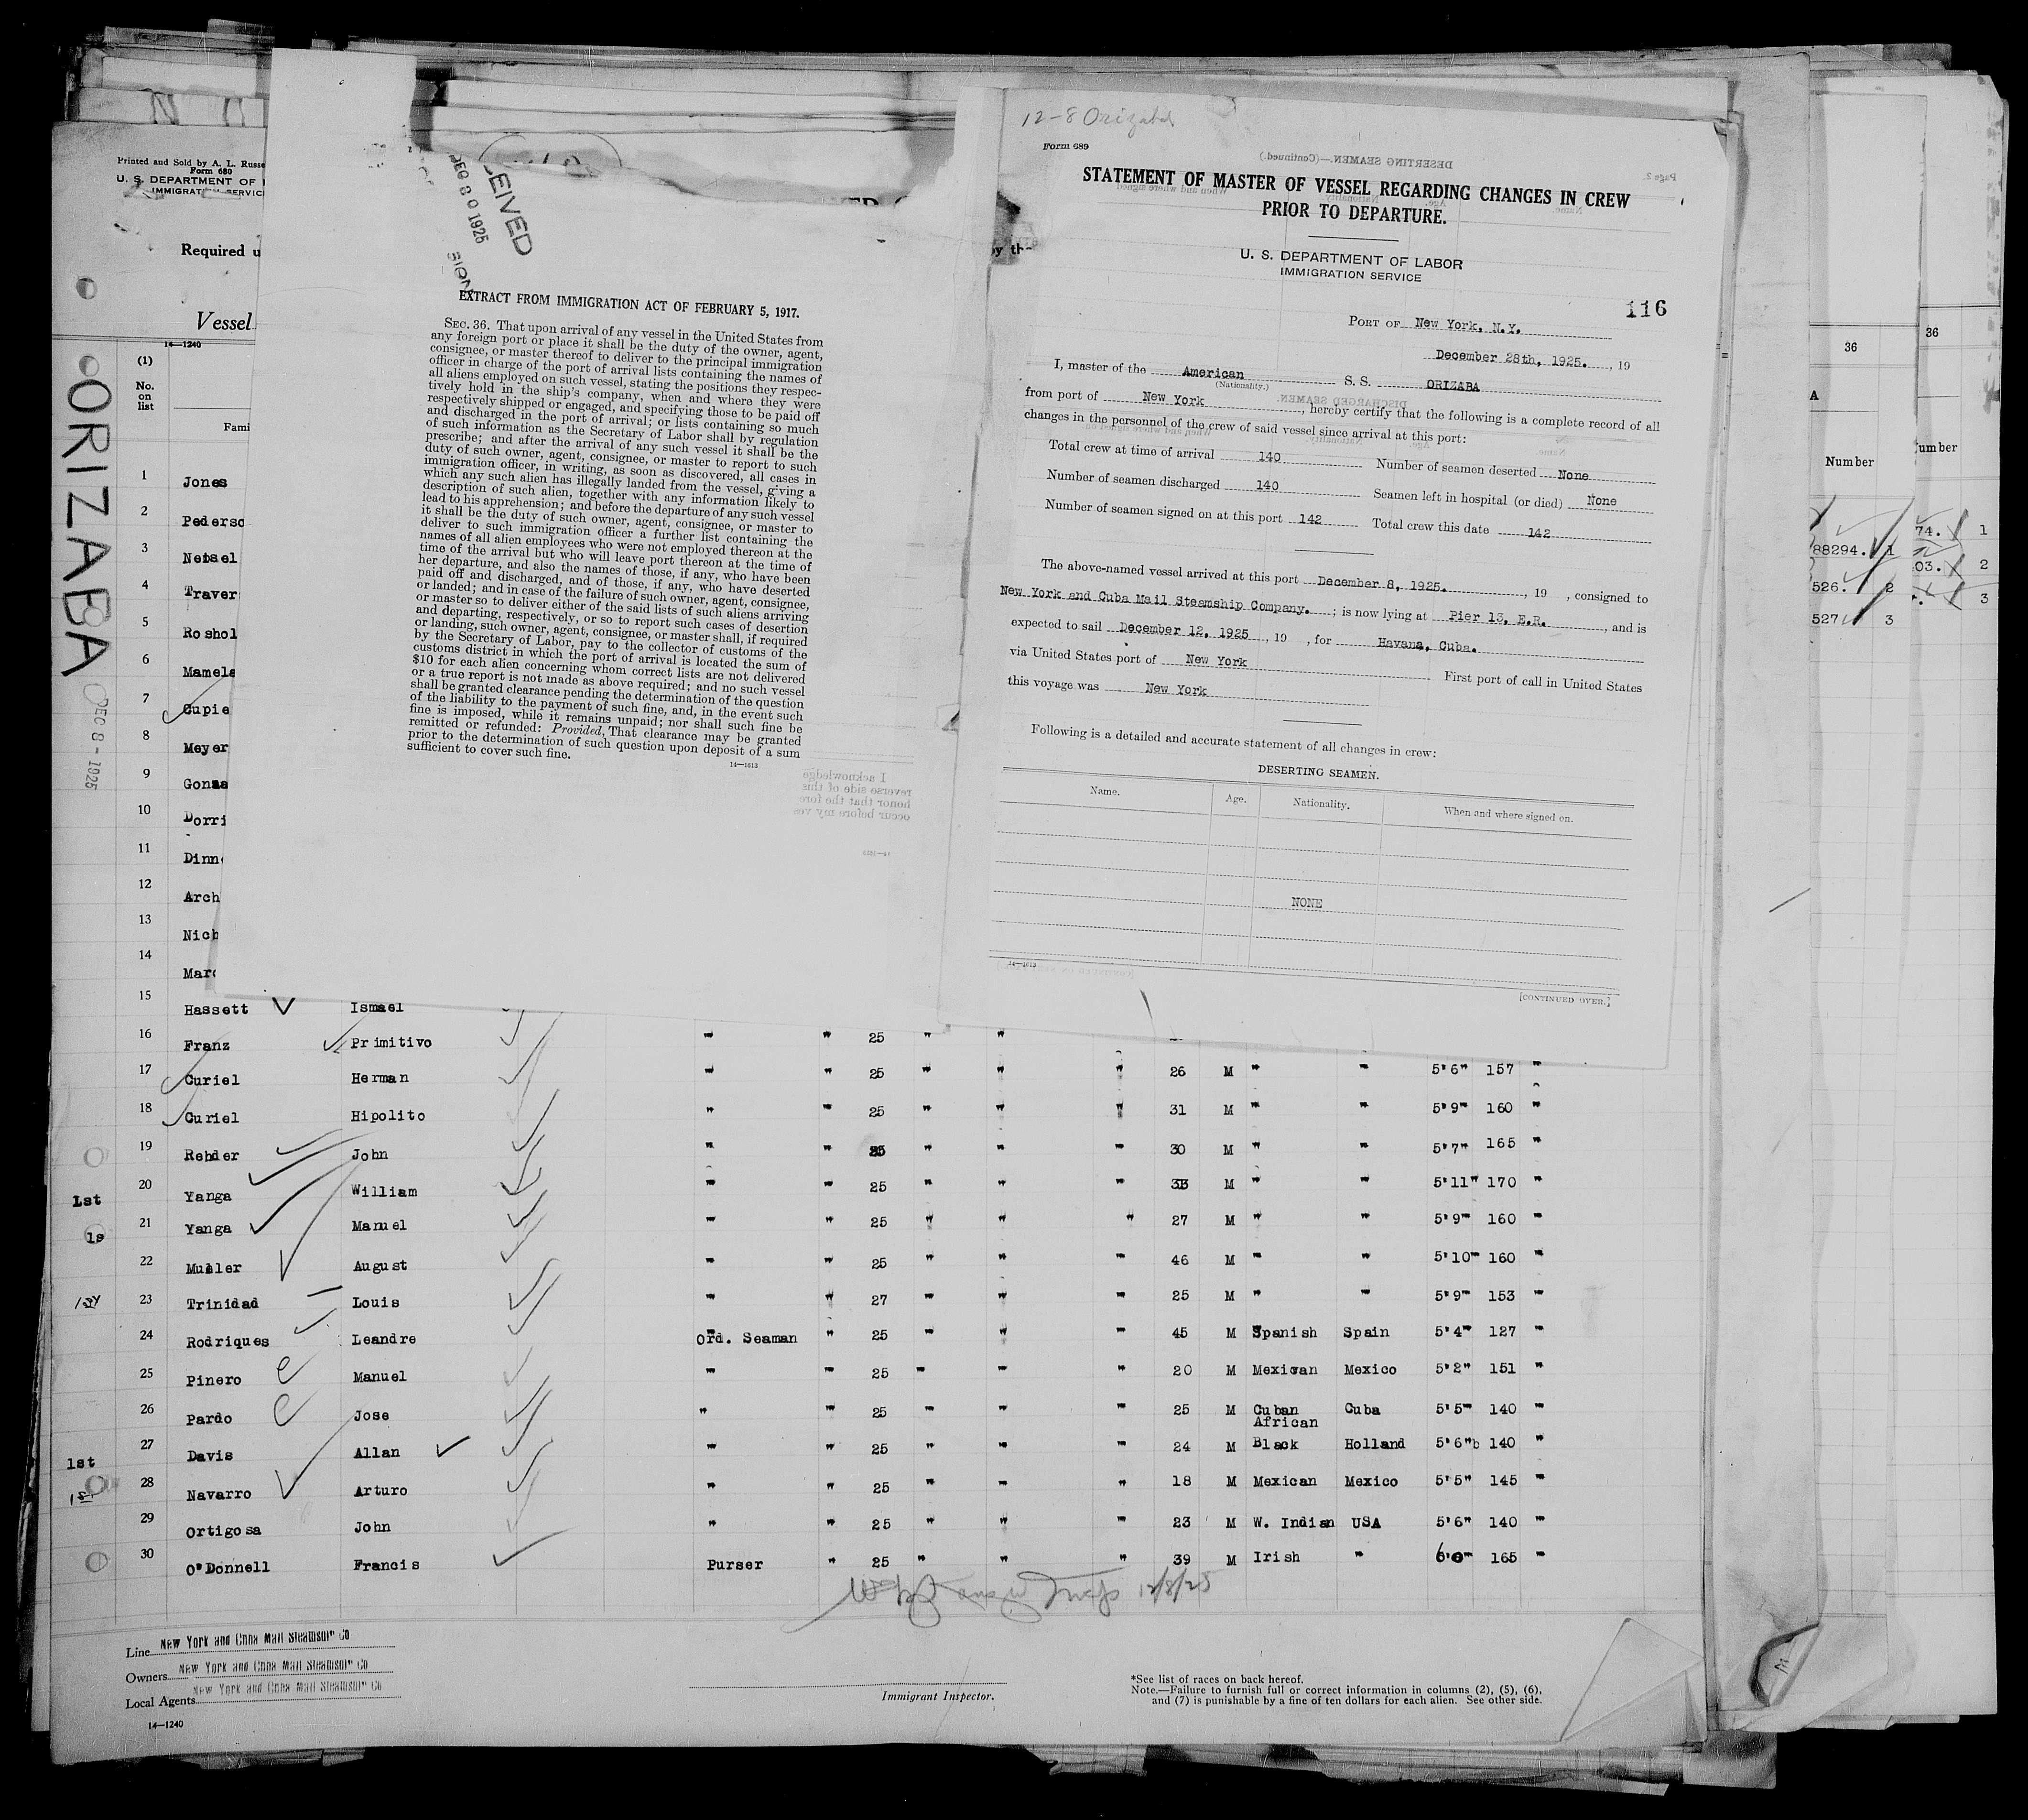 Printed and Sold by A. L. Russe
Form 680
U. S. DEPARTMENT OF
IMMIGRATION SERVIC
Required u
Vessel
14—1240
(1)
No.
on
list
Fami
ORIZABA
DEC 8 - 1925
1 Jones
2 Pederso
3 Netsel
4 Traver
5 Roshol
6 Mamela
7 Cupie
8 Meyer
9 Gonza
10 Dorri
11 Dinn
12 Arch
13 Nich
14 Marc
15 Hassett Ismael
16 Franz Primitivo " " 25 " "
17 Curiel Herman " " 25 " " " 26 M " " 5'6" 157 "
18 Curiel Hipolito " " 25 " " " 31 M " " 5'9" 160 "
19 Rehder John " " 25 " " " 30 M " " 5'7" 165 "
1st 20 Yanga William " " 25 " " " 33 M " " 5'11" 170 "
1s 21 Yanga Manuel " " 25 " " " 27 M " " 5'9" 160 "
22 Muller August " " 25 " " " 46 M " " 5'10" 160 "
1st 23 Trinidad Louis " " 27 " " " 25 M " " 5'9" 153 "
24 Rodriques Leandre Ord. Seaman " 25 " " " 45 M Spanish Spain 5'4" 127 "
25 Pinero Manuel " " 25 " " " 20 M Mexican Mexico 5'2" 151 "
26 Pardo Jose " " 25 " " " 25 M Cuban Cuba 5'5" 140 "
African
1st 27 Davis Allan " " 25 " " " 24 M Black Holland 5'6"b 140 "
1st 28 Navarro Arturo " " 25 " " " 18 M Mexican Mexico 5'5" 145 "
29 Ortigosa John " " 25 " " " 23 M W. Indian USA 5'6" 140 "
30 O'Donnell Francis Purser " 25 " " " 39 M Irish " 6'0" 165 "
12/8/25
Line New York and Cuba Mail Steamship Co
Owners New York and Cuba Mail Steamship Co
Local Agents New York and Cuba Mail Steamship Co
14—1240
Immigrant Inspector.
*See list of races on back hereof.
Note.—Failure to furnish full or correct information in columns (2), (5), (6),
and (7) is punishable by a fine of ten dollars for each alien. See other side.
CEIVED
DEC 30 1925
EXTRACT FROM IMMIGRATION ACT OF FEBRUARY 5, 1917.
SEC. 36. That upon arrival of any vessel in the United States from
any foreign port or place it shall be the duty of the owner, agent,
consignee, or master thereof to deliver to the principal immigration
officer in charge of the port of arrival lists containing the names of
all aliens employed on such vessel, stating the positions they respec-
tively hold in the ship's company, when and where they were
respectively shipped or engaged, and specifying those to be paid off
and discharged in the port of arrival; or lists containing so much
of such information as the Secretary of Labor shall by regulation
prescribe; and after the arrival of any such vessel it shall be the
duty of such owner, agent, consignee, or master to report to such
immigration officer, in writing, as soon as discovered, all cases in
which any such alien has illegally landed from the vessel, giving a
description of such alien, together with any information likely to
lead to his apprehension; and before the departure of any such vessel
it shall be the duty of such owner, agent, consignee, or master to
deliver to such immigration officer a further list containing the
names of all alien employees who were not employed thereon at the
time of the arrival but who will leave port thereon at the time of
her departure, and also the names of those, if any, who have been
paid off and discharged, and of those, if any, who have deserted
or landed; and in case of the failure of such owner, agent, consignee,
or master so to deliver either of the said lists of such aliens arriving
and departing, respectively, or so to report such cases of desertion
or landing, such owner, agent, consignee, or master shall, if required
by the Secretary of Labor, pay to the collector of customs of the
customs district in which the port of arrival is located the sum of
$10 for each alien concerning whom correct lists are not delivered
or a true report is not made as above required; and no such vessel
shall be granted clearance pending the determination of the question
of the liability to the payment of such fine, and, in the event such
fine is imposed, while it remains unpaid; nor shall such fine be
remitted or refunded: Provided, That clearance may be granted
prior to the determination of such question upon deposit of a sum
sufficient to cover such fine.
14—1613
by the
12-8 Orizaba
Form 689
STATEMENT OF MASTER OF VESSEL REGARDING CHANGES IN CREW
PRIOR TO DEPARTURE.
U. S. DEPARTMENT OF LABOR
IMMIGRATION SERVICE
116
PORT OF New York, N.Y.
December 28th, 1925. , 19
I, master of the American S. S. ORIZABA
(Nationality.)
from port of New York , hereby certify that the following is a complete record of all
changes in the personnel of the crew of said vessel since arrival at this port:
Total crew at time of arrival 140 Number of seamen deserted None
Number of seamen discharged 140 Seamen left in hospital (or died) None
Number of seamen signed on at this port 142 Total crew this date 142
The above-named vessel arrived at this port December 8, 1925. , 19 , consigned to
New York and Cuba Mail Steamship Company. ; is now lying at Pier 13, E.R. , and is
expected to sail December 12, 1925 , 19 , for Havana, Cuba.
via United States port of New York First port of call in United States
this voyage was New York
Following is a detailed and accurate statement of all changes in crew:
DESERTING SEAMEN.
Name. Age. Nationality. When and where signed on.
NONE
14—1613
[CONTINUED OVER.]
36
36
A
Number
umber
74. 1
88294. 1
03. 2
526. 2
3
527 3